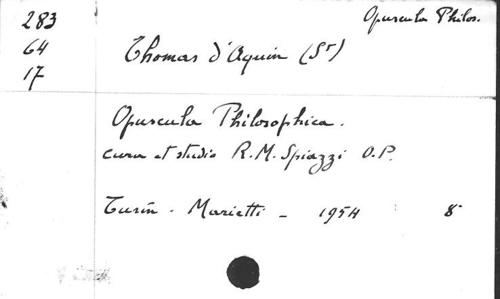 283
64
17
Opuscula Philos.
Thomas d'Aquin (St)
Opuscula Philosophica.
cura et studio R.M. Spiazzi O.P.
Turin - Marietti - 1954 8°